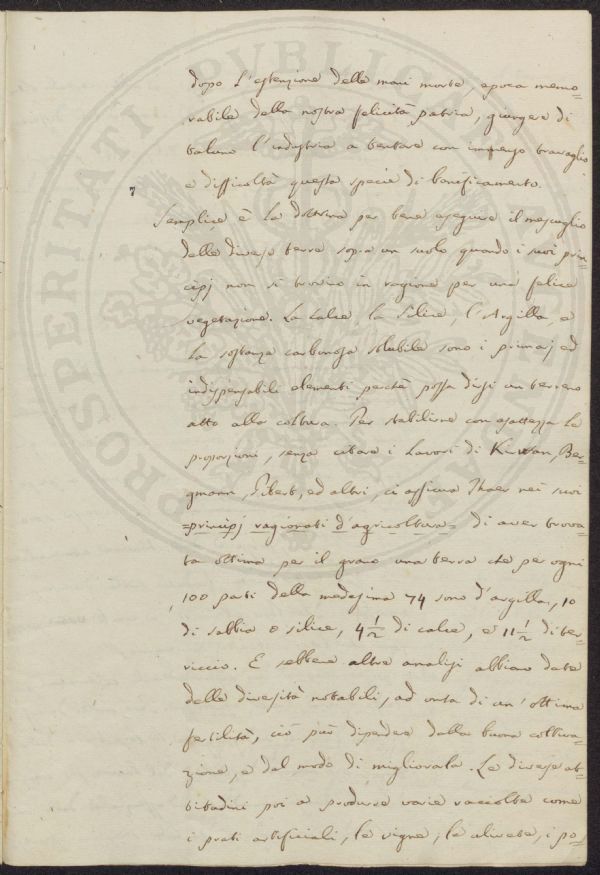 dopo l'estenzione delle mani morte, epoca memo=
rabile della nostra felicità patria, giungere di
taluno l'industria a tentare con immenso travaglio
e difficoltà questa specie di bonificamento.
7
Semplice è la dottrina per bene eseguire il mescuglio
delle diverse terre sopra un suolo quando i suoi prin=
cipj non si trovino in ragione per una felice
vegetazione. La calce, la Silice, l'Argilla, e
la sostanza carbonosa solubile sono i primarj ed
indispensabili elementi perchè possa dirsi un terreno
atto alla coltura. Per stabilirne con esattezza le
proporzioni, senza citare i Lavori di Kirwan, Ber=
gmann, Gibert, ed altri, ci assicura Thaer nei suoi
=principj ragionati d'agricoltura= di aver trova=
ta ottima per il grano una terra che per ogni
100 parti della medesima 74 sono d'argilla, 10
di sabbia o silice, 4 1/2 di calce, e 11 1/2 di ter=
riccio. E sebbene altre analisi abbiano date
delle diversità notabili, ad onta di un'ottima
fertilità, ciò può dipendere dalla buona coltiva=
zione, e dal modo di migliorarla. Le diverse at=
titudini poi a produrre varie raccolte come
i prati artificiali, le vigne, le olivete, i po=
PROSPERITATI PUBLICAE